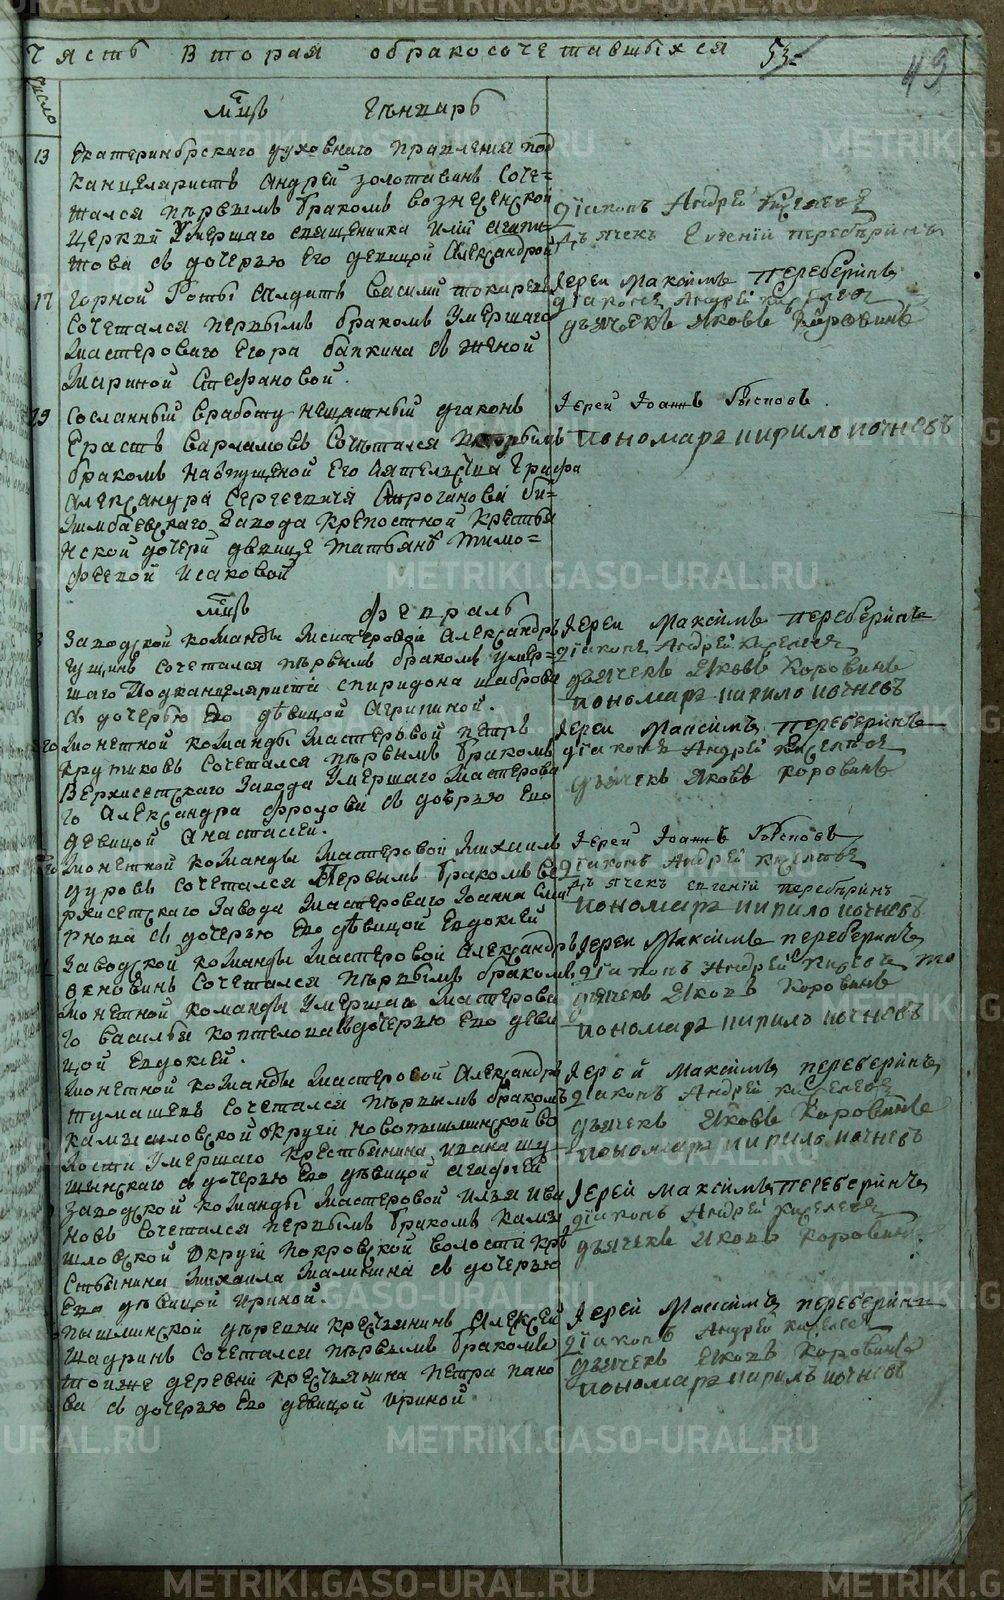 Часть Вторая обракосочетавшыхся 53 49
число
мцъ Генваръ
13 Екатеринбрскаго духовнаго правления под
канцеляристъ андрей золотавинъ Соче=
тался первымъ бракомъ вознесенской
церкви Умершаго священника Илiи агапи
това съ дочерью Его девицой Александрой
дiаконъ Андрей Киселевъ
Дьячекъ Евгенiй переберинъ
17 Горной Роты Салдатъ Василий токарев
Сочетался первымъ бракомъ Умершаго
Мастероваго Егора бапкина съ женой
Мариной Стефановой.
Iереи Максимъ Переберiнъ
дiаконъ Андрей Киселевъ
дьячекъ Яковъ Коровинъ
29 Сосланный вработу нещастный дiаконъ
Ерастъ Варламовъ Сочетался первымъ
бракомъ наотпущеной Его Сиятелства Графа
Александра Сергеевича Строганова би=
лимбаевскаго завода крепостной крестья
нской дочери девице татьяне тимо=
феевой Исаковой
Iерей Iоаннъ
Пономарь кирилъ почневъ
мцъ февралъ
3 Заводской команды Мастеровой Александръ
гущинъ Сочетался первымъ бракомъ умер=
шаго Подканцеляриста спиридона шаброва
съ дочерью Его девицой Агрипиной.
Iереи Максимъ Переберiнъ
дiаконъ Андрей Киселевъ
дьячекъ Яковъ Коровинъ
пономарь кирило почневъ
Монетной команды Мастеровой петръ
крутиковъ Сочетался первымъ бракомъ
Верхисетскаго Завода Умершаго Мастерова
го Александра фролова съ дочерью Его
девицой Анастасией.
Iереи Максимъ Переберiнъ
дiаконъ Андрей Киселевъ
дьячекъ Яковъ Коровинъ
Монетной команды Мастеровой Михаилъ
дуровъ сочетался Первымъ бракомъ ве
рхисетскаго Завода Мастероваго Iоанна Сми
рнова съ дочерью Его девицой Евдокией
Iерей Iоаннъ
дiаконъ Андрей Киселевъ
Дьячекъ евгенiй переберинъ
пономарь кирило почневъ
Заводской команды Мастеровой Александръ
Сочетался первымъ бракомъ
Монетной команды Умершаго Мастерова
го Василья коптелова съ дочерью Его деви
цой Евдокией.
Iереи Максимъ переберiнъ
дiаконъ Андрей Киселевъ
дьячекъ Яковъ Коровинъ
пономарь кирилъ почневъ
Монетной команды Мастеровой Александръ
тумашевъ Сочетался первымъ бракомъ
камышловской округи новопышминской во
лости Умершаго крестьянина ивана шу
шынскаго съ дочерью Его девицой агафией
Iерей Максимъ переберiнъ
дiаконъ Андрей Киселевъ
дьячекъ Яковъ Коровинъ
пономарь кирилъ почневъ
Заводской команды Мастеровой Илья Ива
новъ Сочетался первымъ бракомъ камы
шловской округи покровской волости кре
стьянина Михаила Малинина съ дочерью
Его девицой Ириной.
Iерей Максимъ переберiнъ
дiаконъ Андрей Киселевъ
дьячекъ Яковъ Коровинъ
пышминской деревни крестьянинъ Алексей
шадринъ Сочетался первымъ бракомъ
тоиже деревни крестьянина петра пано
ва съ дочерью Его девицой Ириной
Iерей Максимъ переберiнъ
дiаконъ Андрей Киселевъ
дьячекъ Яковъ Коровинъ
пономарь кирилъ почневъ
METRIKI.GASO-URAL.RU